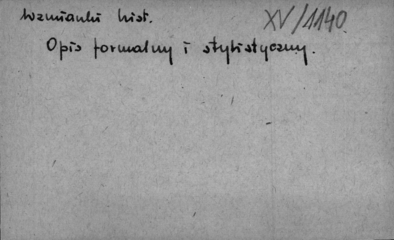 Wzmianki hist.
XV/1140.
Opis formalny i stylistyczny.